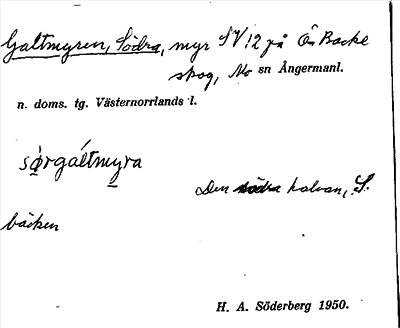 Galtmyren, Södra, myr SV12 på Ön Backe
skog, Mo sn Ångermanl.
n. doms. tg. Västernorrlands l.
sørgáltmyra
Den södra halvan, S.
bäcken
H. A. Söderberg 1950.